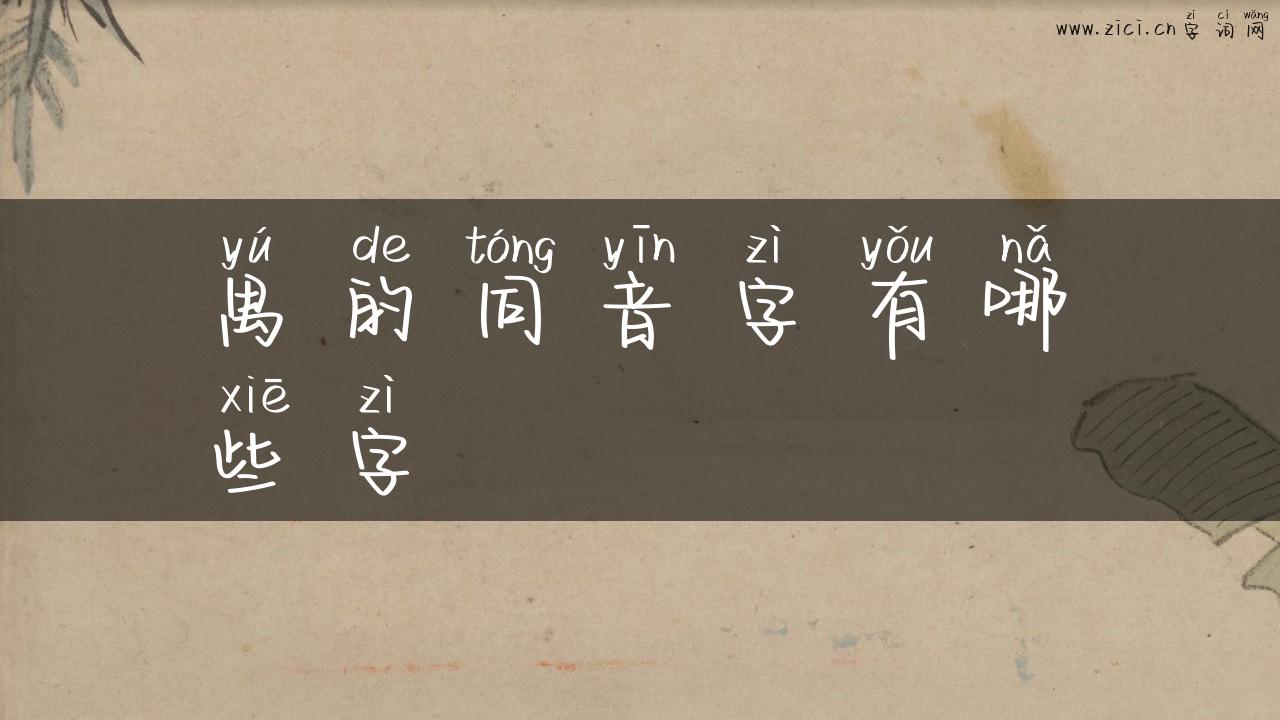 zì cí wǎng
www.zici.cn 字 词 网
yú de tóng yīn zì yǒu nǎ
禺 的 同 音 字 有 哪
xiē zì
些 字